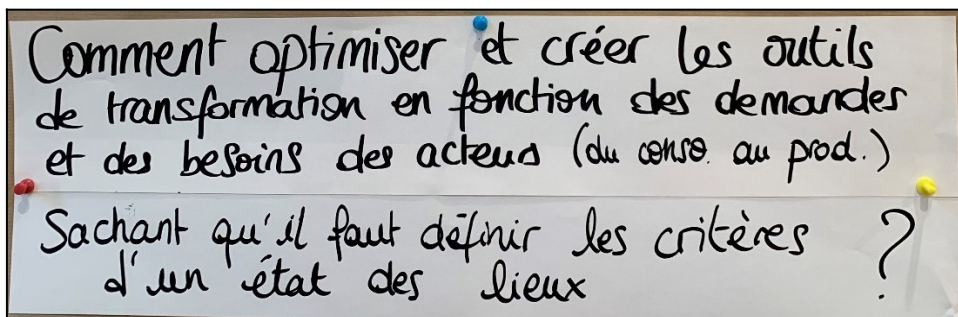 Comment optimiser et créer les outils
de transformation en fonction des demandes
et des besoins des acteurs (du conso. au prod.)
Sachant qu'il faut définir les critères ?
d'un état des lieux